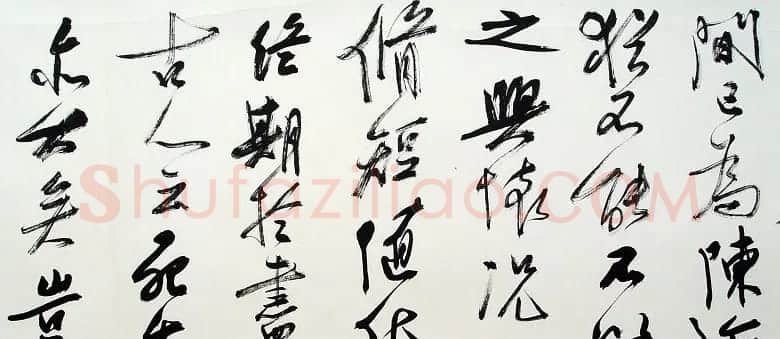 間已為陳迹
猶不能不以
之興懷況
脩短随化
終期於盡
古人云死生
亦大矣豈
Shufaziliao.COM